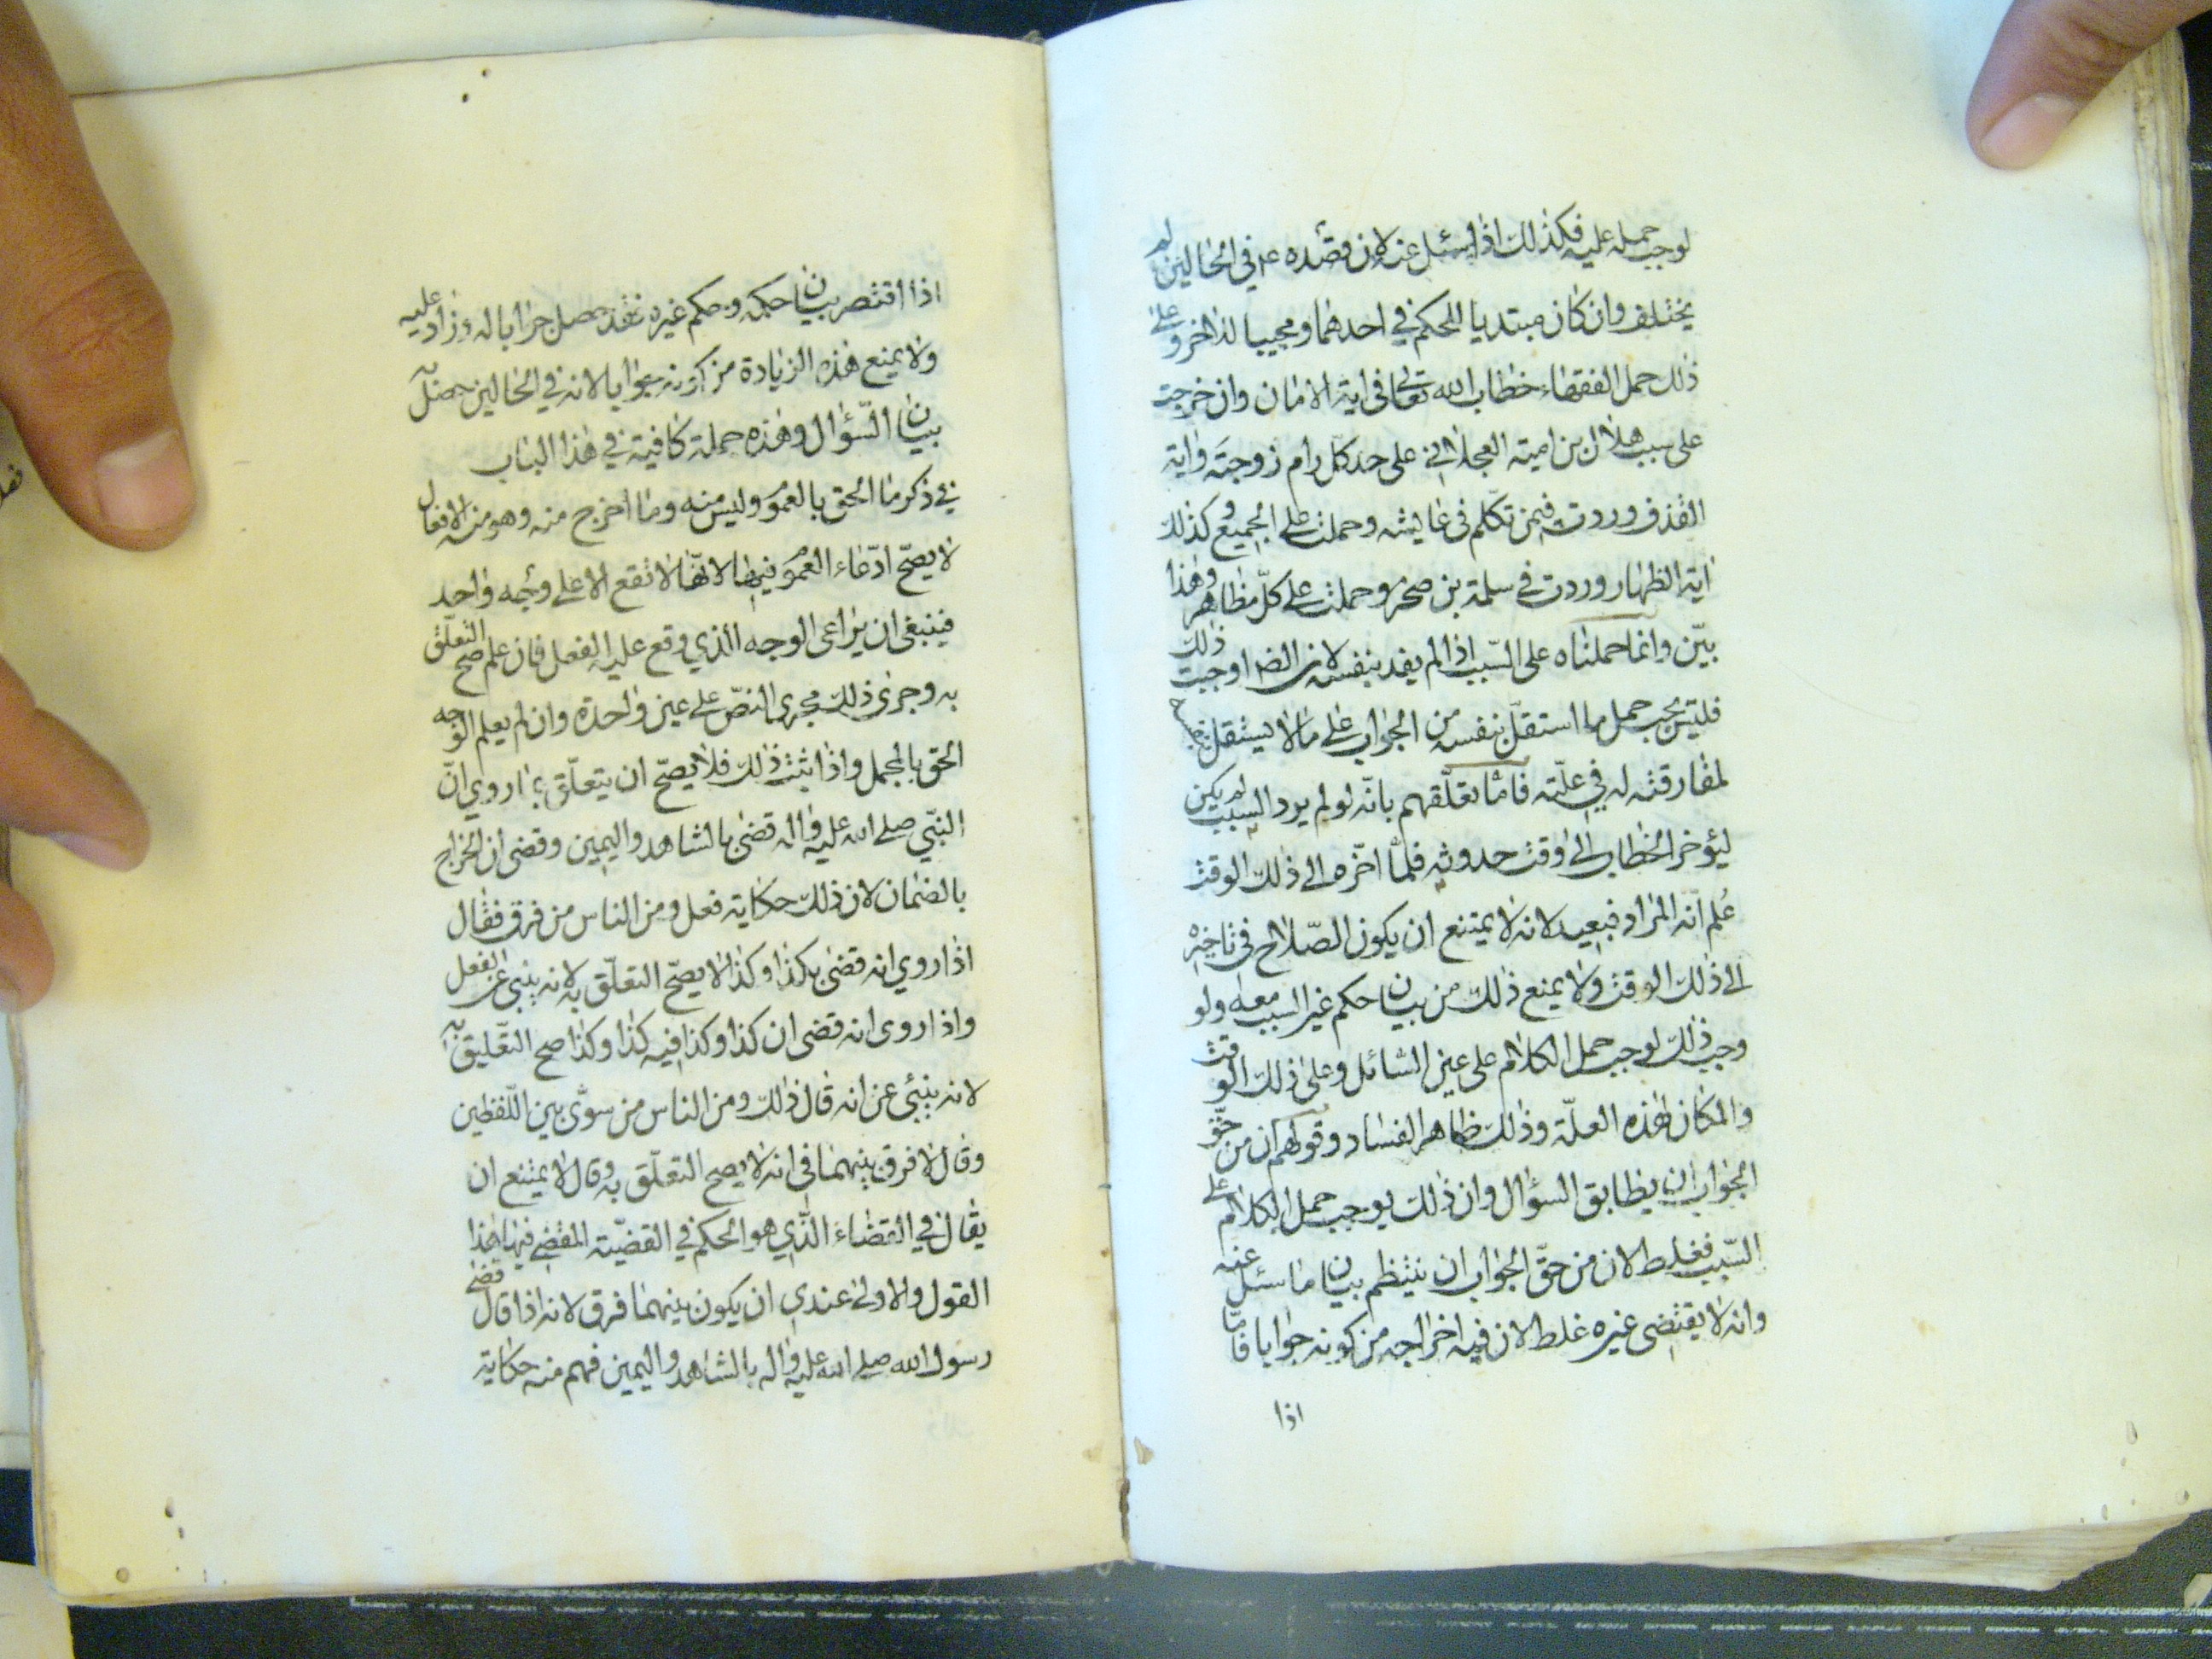 لوجب حمله عليه فكذلك اذا سئل عنه لان قصده ع في الحالين لم
يختلف وان كان مبتديا للحكم في احدهما ومجيبا لذا اخر وعلى
ذلك حمل الفقهاء خطاب الله تعالى في اية الامان وان خرجت
على سبب هلال بن امية العجلاني على حد كل رام زوجته واية
القذف وردت فيمن تكلم في عايشه وحملت على الجميع وكذلك
اية الظهار وردت في سلمة بن صخر وحملت على كل مظاهر وهذا
بيّن وانما حملناه على السّبب اذا لم يفد بنفسه لان الضر اوجبت ذلك
فليس يجب حمل ما استقلّ بنفسه من الجواب على ما لا يستقل بنفسه
لمفارقته له في علّته فامّا تعلّقهم بانّه لو لم يرد السبب لم يكن
ليؤخر الخطاب الى وقت حدوثه فلمّا اخّره الى ذلك الوقت
عُلم انّه المراد فبعيد لانه لا يمتنع ان يكون الصّلاح في تاخيره
الى ذلك الوقت ولا يمنع ذلك من بيان حكم غير السبب معه ولو
وجب ذلك لوجب حمل الكلام على عين السّائل وعلى ذلك الوقت
والمكان لهذه العلّة وذلك ظاهر الفساد وقولهم ان من حقّ
الجواب ان يطابق السؤال وان ذلك يوجب حمل الكلام على
السّبب فغلط لان من حقّ الجواب ان ينتظم بيان ما سئل عنه
وانه لا يقتضى غيره غلط لان فيه اخراجه من كونه جوابا فامّا
اذا
اذا اقتصر بيان حكمه وحكم غيره فقد حصل جوابا له وزاد عليه
ولا يمنع هذه الزيادة من كونه جوابا لانه في الحالين حصل به
بيان السّؤال وهذه جملة كافية في هذا الباب
في ذكر ما الحق بالعموم وليس منه وما اخرج منه وهو منه الافعال
لا يصحّ ادّعاء العموم فيها لانّها لا تقع الا على وجه واحد
فينبغى ان يراعى الوجه الذي وقع عليه الفعل فان علم صح التعلّق
به وجرى ذلك مجرى النصّ على عين واحدة وان لم يعلم الوجه
الحق بالمجمل واذا ثبت ذلك فلا يصحّ ان يتعلّق بما روي انّ
النبّي صلى الله عليه واله قضى بالشاهد واليمين وقضى ان الخراج
بالضمان لان ذلك حكاية فعل ومن الناس من فرق فقال
اذا روي انه قضى بكذا وكذا لا يصحّ التعلّق به لانه ينبى عن الفعل
واذا روى انه قضى ان كذا وكذا فيه كذا وكذا صح التعّليق به
لانه ينبئى عن انه قال ذلك ومن الناس من سوّى بين اللّفظين
وقال لا فرق بينهما في انه لا يصح التعلّق به وقال لا يمتنع ان
يقال في القضاء الّذي هو الحكم في القضيّة المقضى فيها بهذا
القول والاولى عندي ان يكون بينهما فرق لانه اذا قال قضى
رسول الله صلى الله عليه واله بالشاهد واليمين فهم منه حكاية